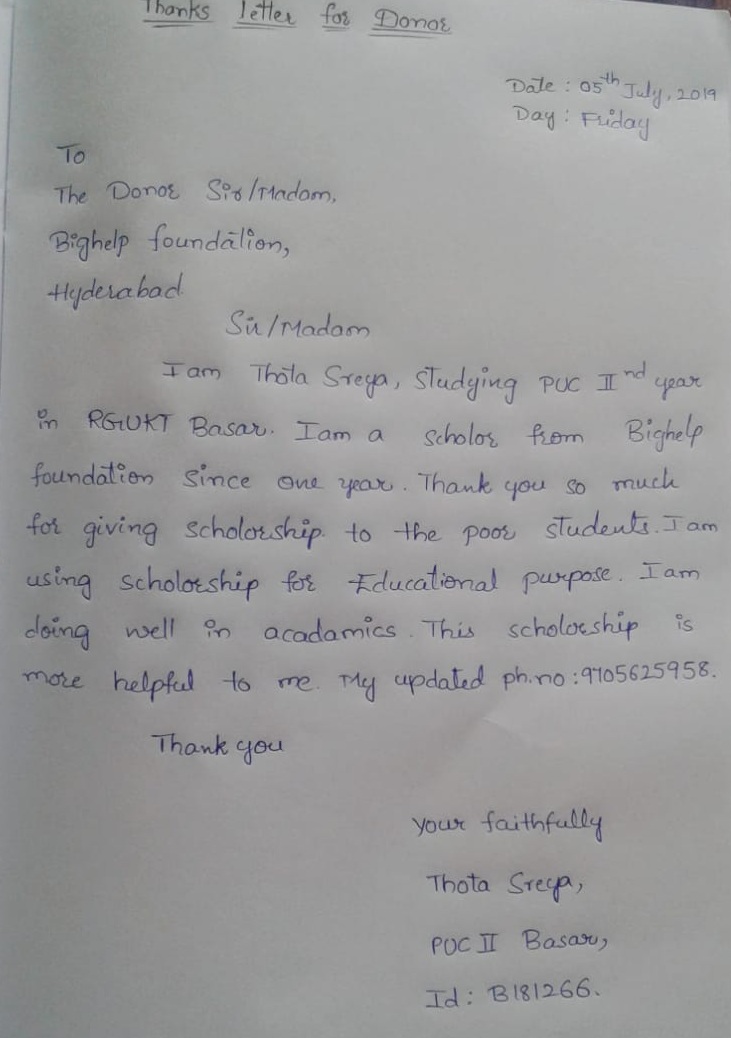 Thanks letter for Donor
Date : 05th July, 2019
Day : Friday
To
The Donor Sir/Madam,
Bighelp foundation,
Hyderabad
Sir/Madam
I am Thota Sreya, Studying PUC IInd year
in RGUKT Basar. I am a scholor from Bighelp
foundation since one year. Thank you so much
for giving scholorship to the poor students. I am
using scholorship for Educational purpose. I am
doing well in acadamics. This scholorship is
more helpful to me. My updated ph.no : 9705625958.
Thank you
your faithfully
Thota Sreya,
PUC II Basar,
Id : B181266.